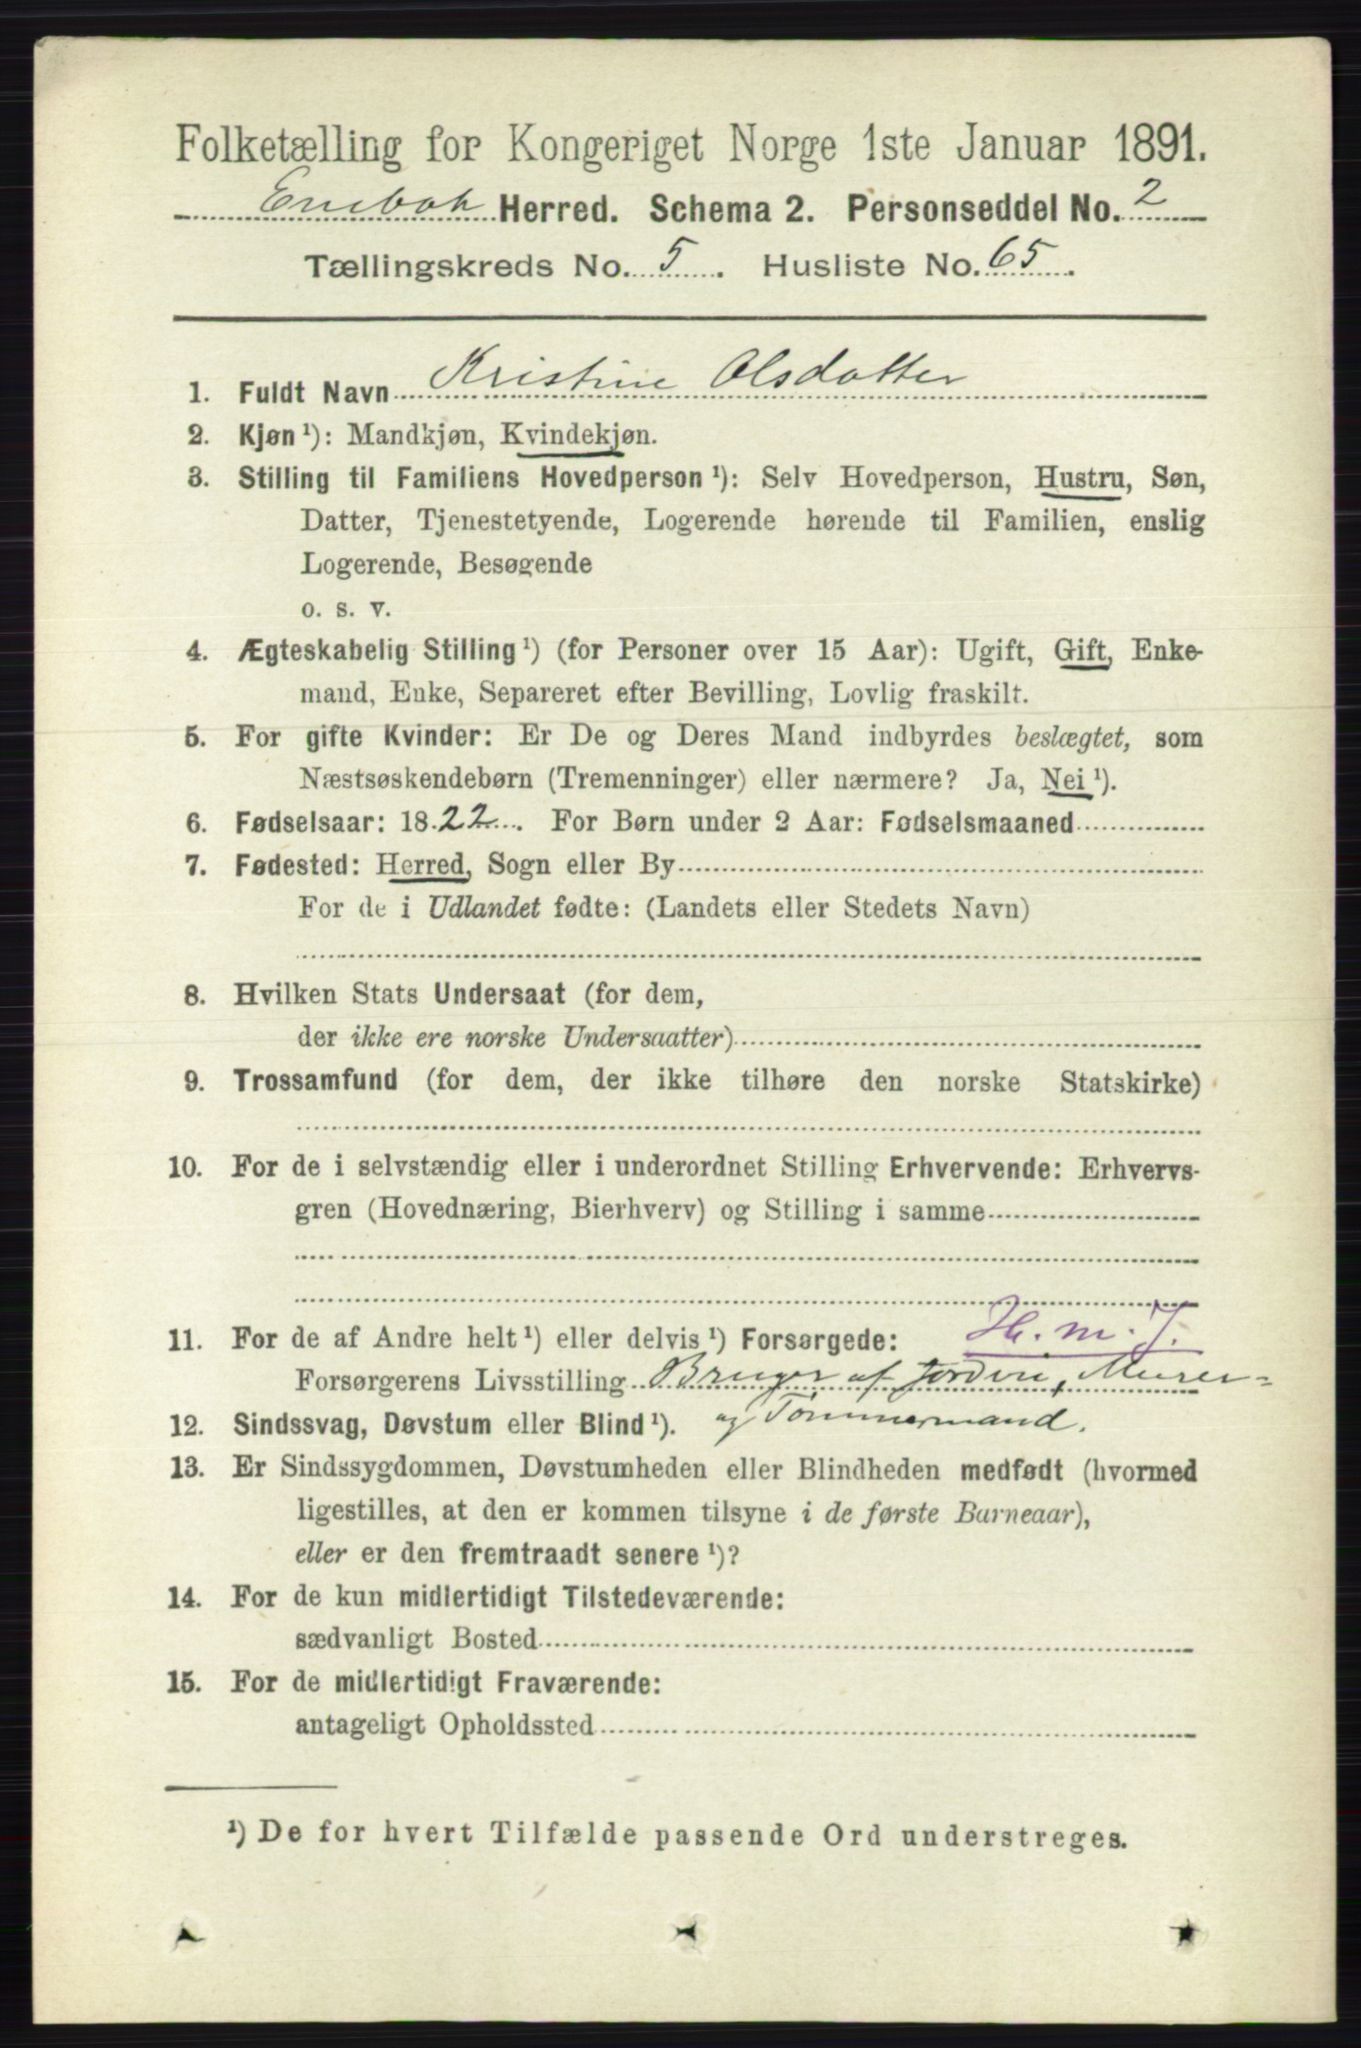 Folketælling for Kongeriget Norge 1ste Januar 1891.
Enebak Herred. Schema 2. Personseddel No. 2
Tællingskreds No. 5. Husliste No. 65.
1. Fuldt Navn Kristine Olsdatter
2. Kjøn ¹): Mandkjøn, Kvindekjøn.
3. Stilling til Familiens Hovedperson ¹): Selv Hovedperson, Hustru, Søn,
Datter, Tjenestetyende, Logerende hørende til Familien, enslig
Logerende, Besøgende
o. s. v.
4. Ægteskabelig Stilling ¹) (for Personer over 15 Aar): Ugift, Gift, Enke-
mand, Enke, Separeret efter Bevilling, Lovlig fraskilt.
5. For gifte Kvinder: Er De og Deres Mand indbyrdes beslægtet, som
Næstsøskendebørn (Tremenninger) eller nærmere? Ja, Nei ¹).
6. Fødselsaar: 1822. For Børn under 2 Aar: Fødselsmaaned
7. Fødested: Herred, Sogn eller By
For de i Udlandet fødte: (Landets eller Stedets Navn)
8. Hvilken Stats Undersaat (for dem,
der ikke ere norske Undersaatter)
9. Trossamfund (for dem, der ikke tilhøre den norske Statskirke)
10. For de i selvstændig eller i underordnet Stilling Erhvervende: Erhvervs-
gren (Hovednæring, Bierhverv) og Stilling i samme
11. For de af Andre helt ¹) eller delvis ¹) Forsørgede: H. m. J.
Forsørgerens Livsstilling Bruger af Jorden, Murer-
12. Sindssvag, Døvstum eller Blind ¹). og Tømmermand.
13. Er Sindssygdommen, Døvstumheden eller Blindheden medfødt (hvormed
ligestilles, at den er kommen tilsyne i de første Barneaar),
eller er den fremtraadt senere ¹)?
14. For de kun midlertidigt Tilstedeværende:
sædvanligt Bosted
15. For de midlertidigt Fraværende:
antageligt Opholdssted
¹) De for hvert Tilfælde passende Ord understreges.